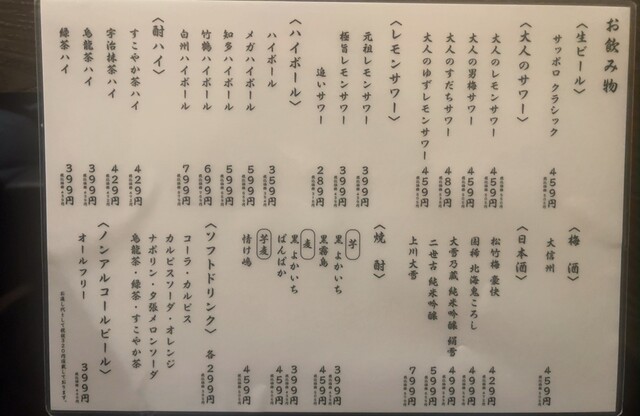 お飲み物
〈生ビール〉
サッポロ クラシック 459円
〈大人のサワー〉
大人のレモンサワー 459円
大人の男梅サワー 459円
大人のすだちサワー 489円
大人のゆずレモンサワー 459円
〈レモンサワー〉
元祖レモンサワー 399円
極旨レモンサワー 399円
追いサワー 289円
〈ハイボール〉
ハイボール 359円
メガハイボール 599円
知多ハイボール 599円
竹鶴ハイボール 699円
白州ハイボール 799円
〈酎ハイ〉
すこやか茶ハイ 429円
宇治抹茶ハイ 429円
烏龍茶ハイ 399円
緑茶ハイ 399円
〈梅酒〉
大信州 459円
〈日本酒〉
松竹梅 豪快 429円
国稀 北海鬼ころし 499円
大雪乃蔵 純米吟醸 絹雪 499円
二世古 純米吟醸 599円
上川大雪 799円
〈焼酎〉
芋
黒よかいち 399円
黒霧島 459円
麦
黒よかいち 399円
ばんばか 459円
芋麦
情け嶋 459円
〈ソフトドリンク〉 各299円
コーラ・カルピス
カルピスソーダ・オレンジ
ナポリン・夕張メロンソーダ
烏龍茶・緑茶・すこやか茶
〈ノンアルコールビール〉
オールフリー 399円